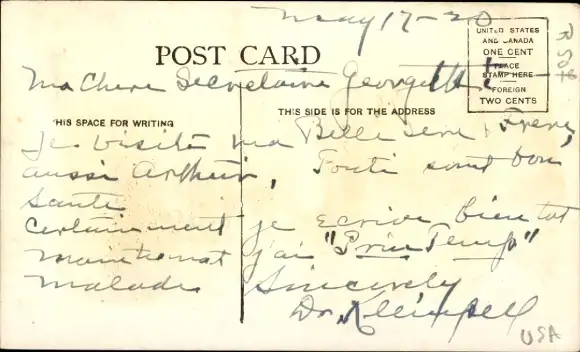 May 17-20
UNITED STATES
AND CANADA
ONE CENT
PLACE
STAMP HERE
FOREIGN
TWO CENTS
POST CARD
Ma Chere Secretaire Georgette
THIS SIDE IS FOR THE ADDRESS
HIS SPACE FOR WRITING
Je visite ma Belle Sere & Frere,
aussi Arthur, Touti sont bon
Sante
Certainment je Ecrive bientot
maintenat j'ai "Prin Temp"
malade Sincerely
Dr.
USA